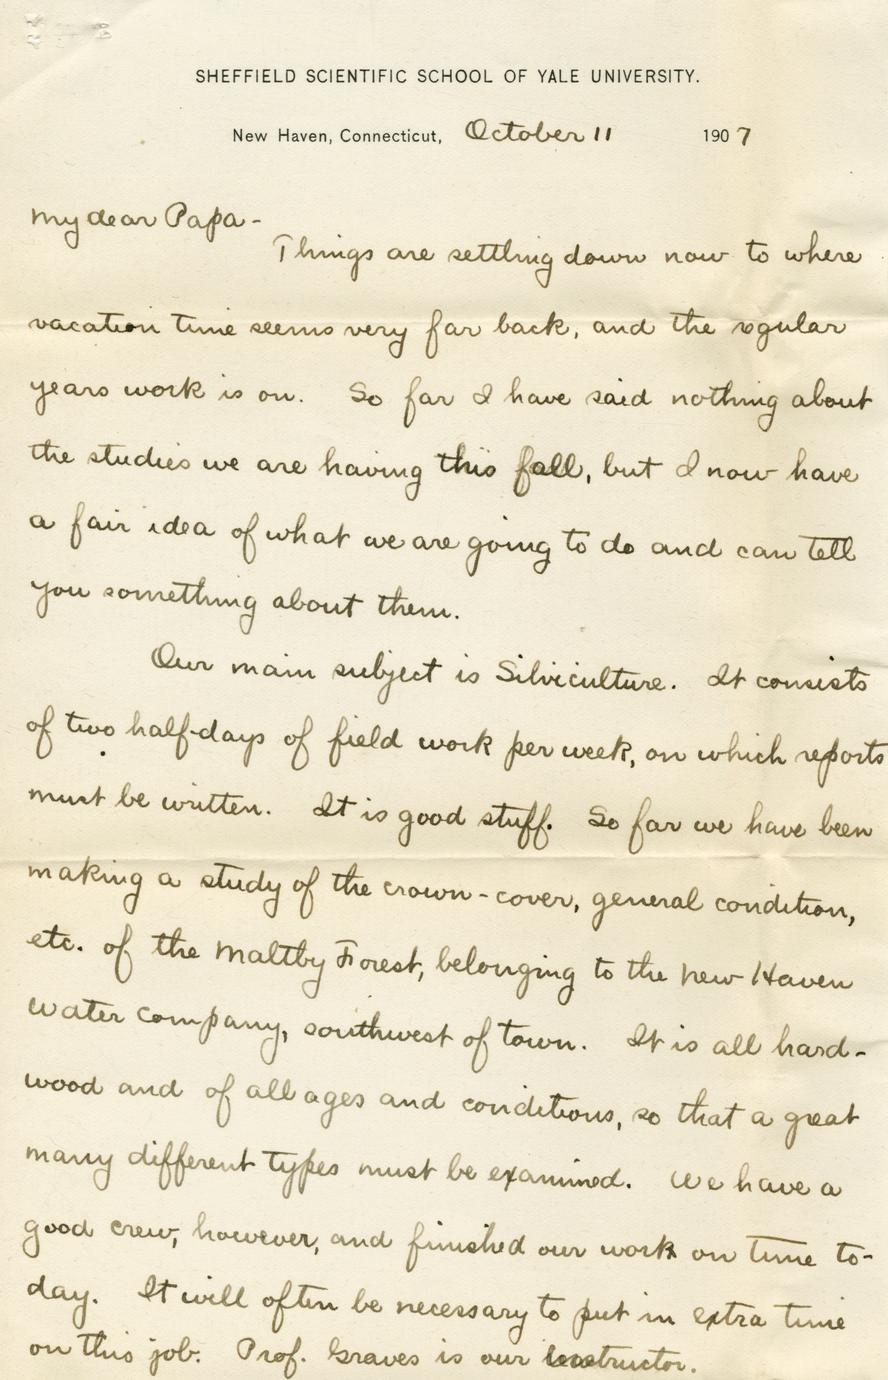 SHEFFIELD SCIENTIFIC SCHOOL OF YALE UNIVERSITY.
New Haven, Connecticut, October 11 1907
My dear Papa -
Things are settling down now to where
vacation time seems very far back, and the regular
years work is on. So far I have said nothing about
the studies we are having this fall, but I now have
a fair idea of what we are going to do and can tell
you something about them.
Our main subject is Silviculture. It consists
of two half-days of field work per week, on which reports
must be written. It is good stuff. So far we have been
making a study of the crown-cover, general condition,
etc. of the Maltby Forest, belonging to the New Haven
Water company, southwest of town. It is all hard-
wood and of all ages and conditions, so that a great
many different types must be examined. We have a
good crew, however, and finished our work on time to-
day. It will often be necessary to put in extra time
on this job. Prof. Graves is our instructor.